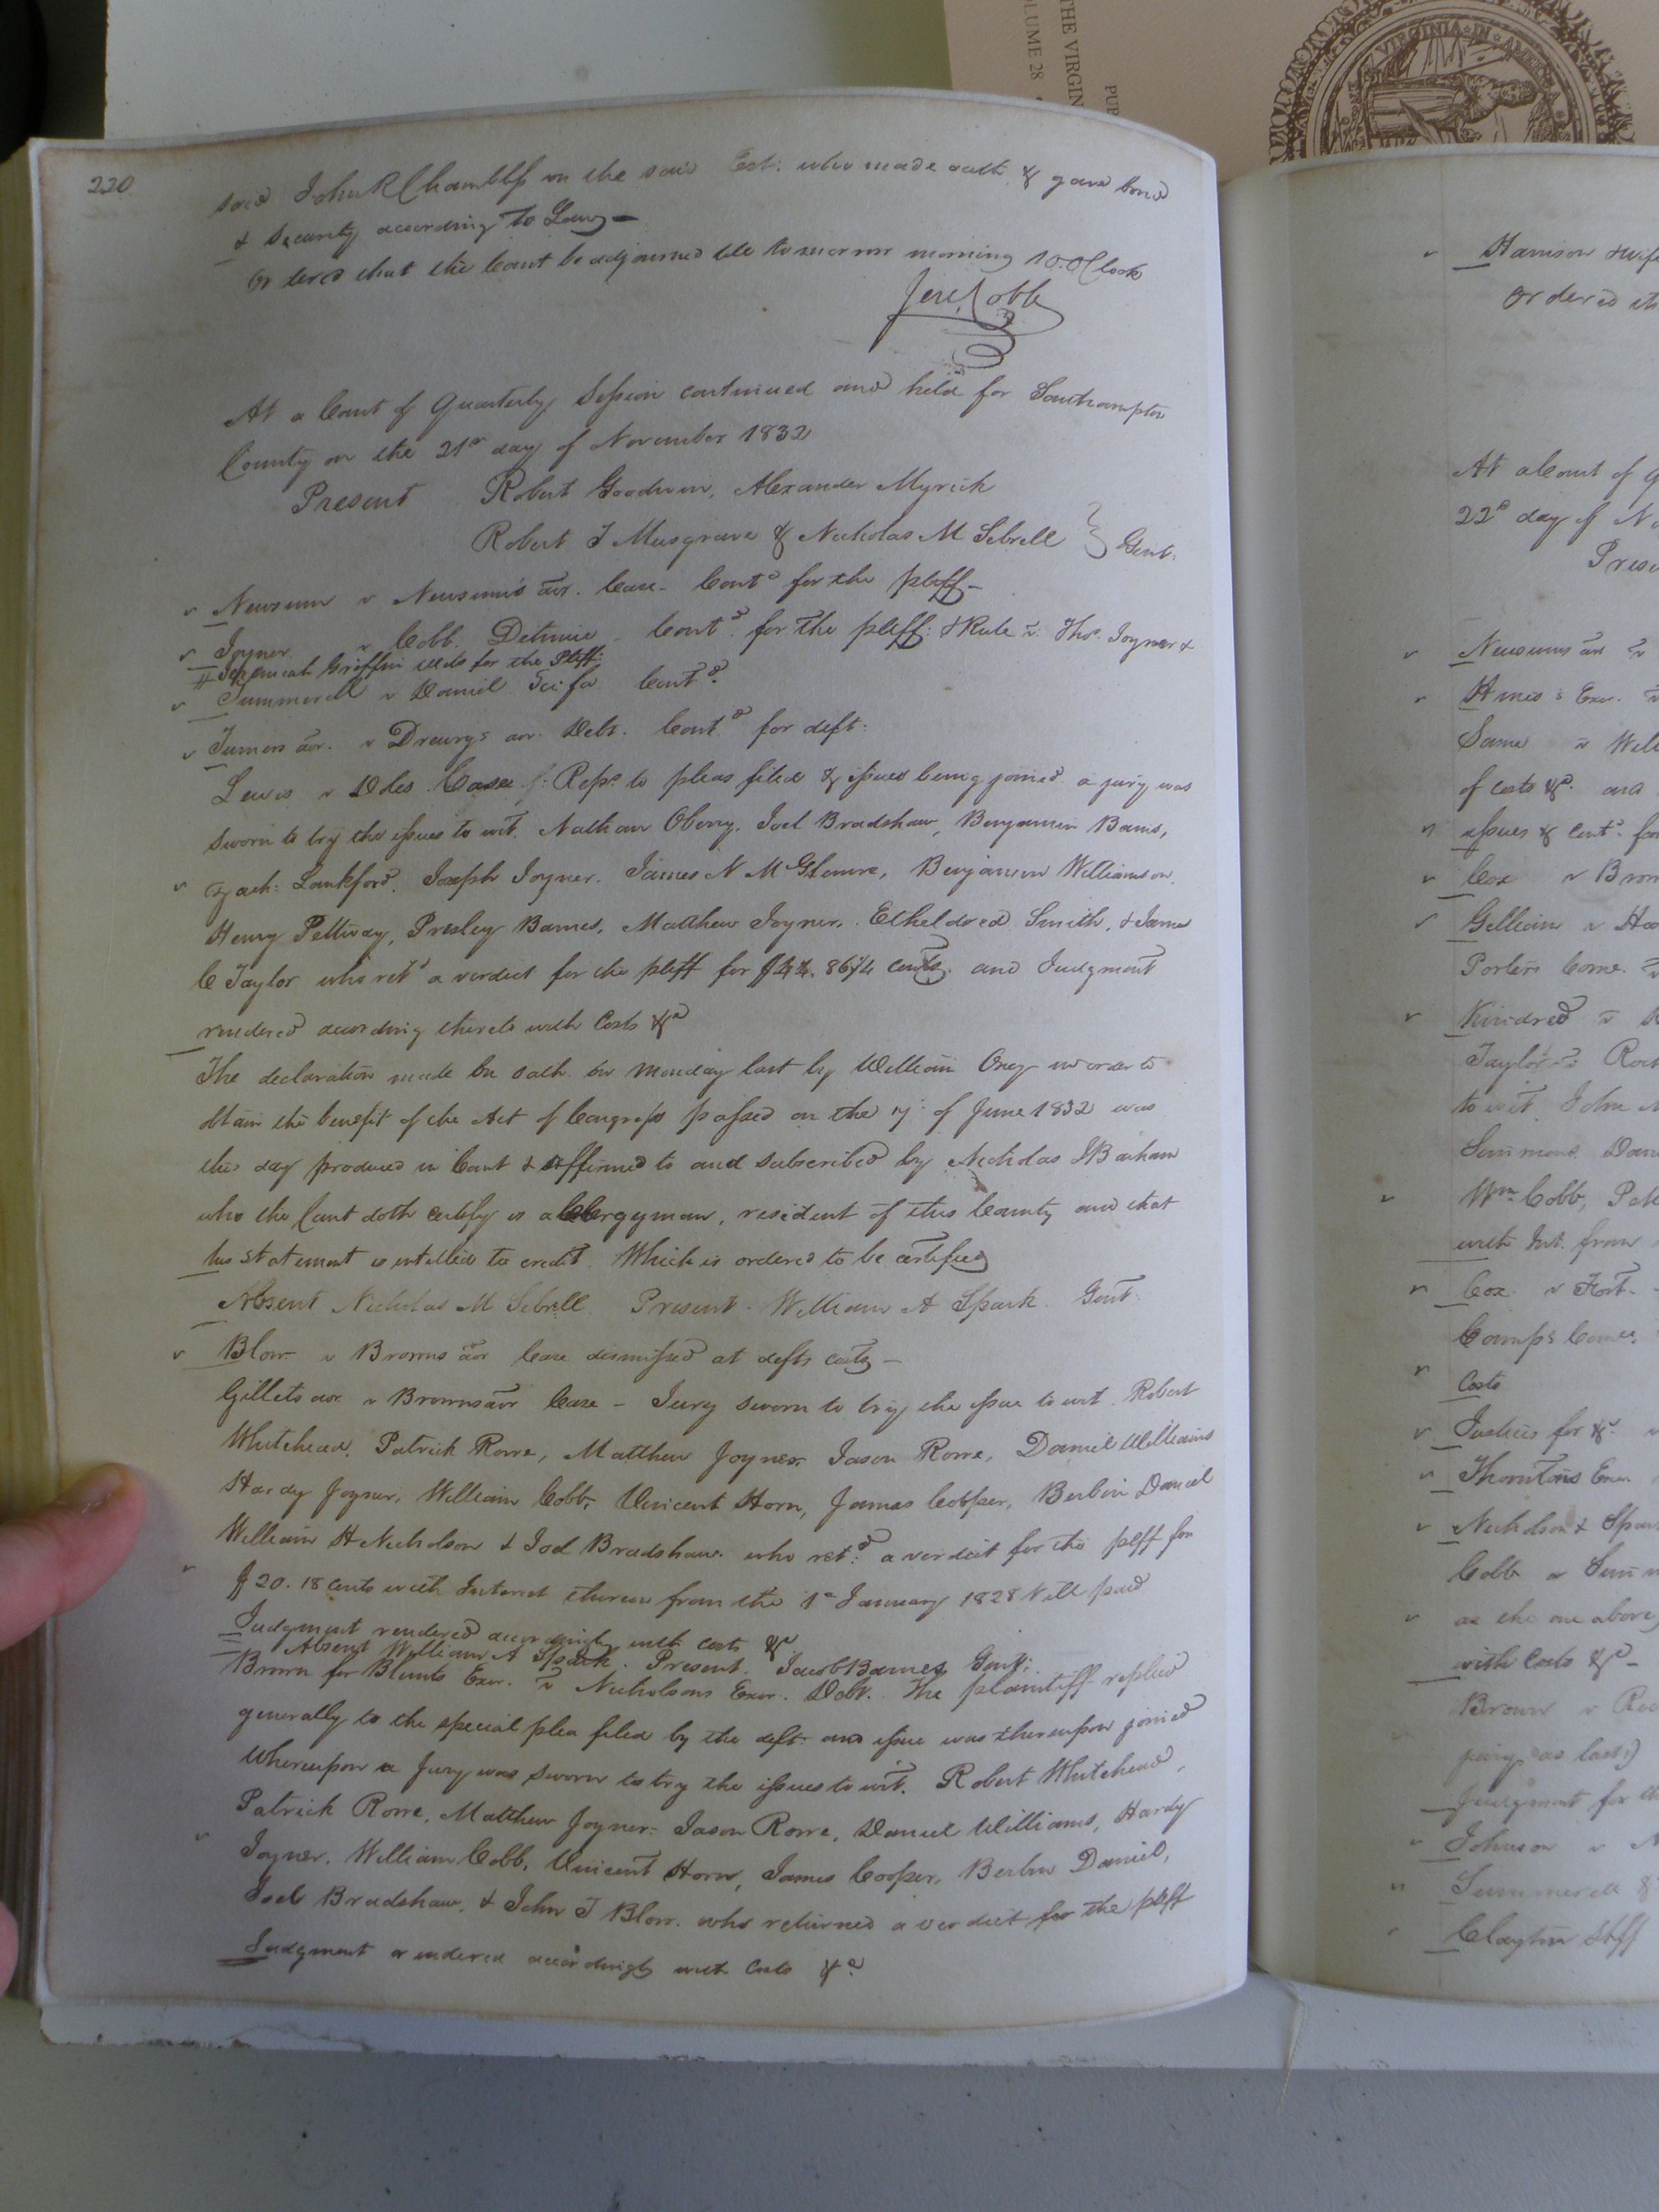 220
said John R Chambliss on the said Est. who made oath & gave bond
& Security according to Law
Ordered that the Court be adjourned till tomorrow morning 10.OClock
Jere. Cobb
At a Court of Quarterly Session continued and held for Southampton
County on the 21st day of November 1832
Present Robert Goodwin, Alexander Myrick
Robert T Musgrave & Nicholas M Sebrell } Gent.
Newsum v Newsum's aor. Case - Contd for the pltff -
Joyner v Cobb. Detinue - Contd. for the pltff: & Rule v. Thos. Joyner &
# Jeremiah Griffin for the Pltff:
Summerell v Daniel Sci fa Contd.
Turners aor. v Drewrys aor. Debt. Contd for deft:
Lewis v Doles. Case. Repn. to pleas filed & issues being joined a jury was
sworn to try the issues to wit. Nathan Oberry, Joel Bradshaw, Benjamin Barns,
Zach: Lankford, Joseph Joyner, James N McLemore, Benjamin Williamson,
Henry Pettway, Presley Barnes, Matthew Joyner, Etheldred Smith, & James
C Taylor who retd a verdict for the pltff for $ 86 1/4 cents. and Judgment
rendered according thereto with Costs &a
The declaration made on oath on Monday last by William Oney in order to
obtain the benefit of the Act of Congress passed on the 7. of June 1832 was
this day produced in Court & affirmed to and subscribed by Nicholas Barham
who the Court doth certify is a Clergyman, resident of this County and that
his statement is intitled to credit. Which is ordered to be certified
Absent Nicholas M Sebrell. Present. William A Spark. Gent.
Blow v Browns aor Case dismissed at defts costs -
Gillets aor. v Browns aor Case - Jury sworn to try the issue to wit. Robert
Whitehead, Patrick Rowe, Matthew Joyner, Jason Rowe, Daniel Williams
Hardy Joyner, William Cobb, Vincent Horn, James Cooper, Berlin Daniel
William H Nicholson & Joel Bradshaw. who retd. a verdict for the pltff for
$20.18 cents with Interest thereon from the 1st January 1828 till paid
Judgment rendered accordingly with costs &a
Absent William A Spark. Present. Jacob Barnes Gent:
Brown for Blunts Exor. v Nicholsons Exor. Debt. The plaintiff replied
generally to the special plea filed by the deft. and issue was thereupon joined
Whereupon a Jury was sworn to try the issues to wit. Robert Whitehead,
Patrick Rowe, Matthew Joyner, Jason Rowe, Daniel Williams, Hardy
Joyner, William Cobb, Vincent Horn, James Cooper, Berlin Daniel,
Joel Bradshaw, & John T Blow. who returned a verdict for the pltff
Judgment rendered accordingly with Costs &a.
THE VIRGIN
OLUME 28
PUB
VIRGINIA
Harrison & wife
Ordered th
At a Court of Q
22d day of No
Prese
Newsums aor v
Ames's Exor. v
Same v Will
of costs &a. and
issues & contd. for
Cox v Brow
Gilliam v
Porters Come. v
Kindred v
Taylor v
to wit John
Simmons Dan
Wm Cobb,
with Int. from
Cox v Fort.
Camps Comee.
Costs
Justices for &c. v
Thorntons Exor
Nicholson & Spar
Cobb
as the one above)
with Costs &c -
Brown v
jury as last)
Judgment for
Johnson v
Summerell &
Clayton